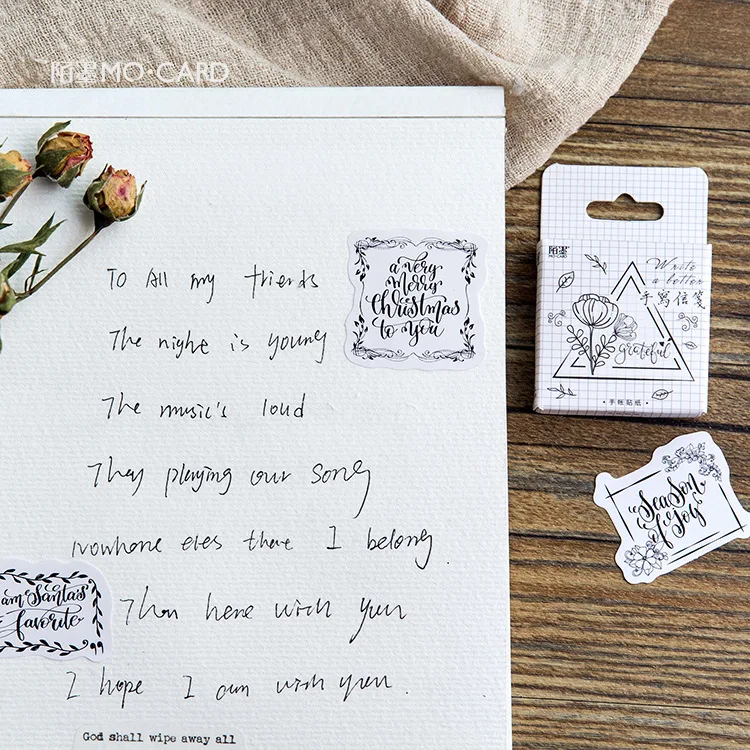 陌墨 MO·CARD
To All my friends
The nighe is young
The music's loud
They playing our song
Nowhone eles there I belong.
Than here wich yun
I hope I am wich yun.
God shall wipe away all
a very
merry
Christmas
to you
am Santa's
favorite
陌墨
MO·CARD
Write
a letter
手寫信箋
grateful
·手帐贴纸·
Season
of Joy